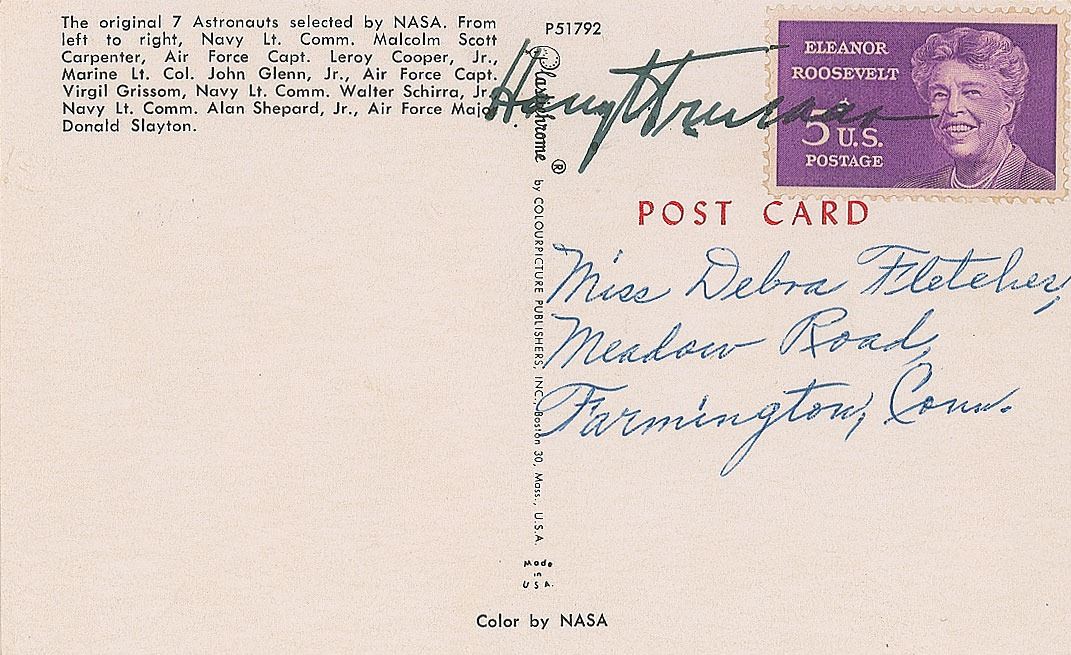 The original 7 Astronauts selected by NASA. From
left to right, Navy Lt. Comm. Malcolm Scott
Carpenter, Air Force Capt. Leroy Cooper, Jr.,
Marine Lt. Col. John Glenn, Jr., Air Force Capt.
Virgil Grissom, Navy Lt. Comm. Walter Schirra, Jr.
Navy Lt. Comm. Alan Shepard, Jr., Air Force Major
Donald Slayton.
P51792
Harry Truman
ELEANOR
ROOSEVELT
5¢ U.S.
POSTAGE
Plastichrome ® by COLOURPICTURE PUBLISHERS, INC., Boston 30, Mass., U.S.A.
POST CARD
Miss Debra Fletcher,
Meadow Road,
Farmington, Conn.
Made
in
U.S.A.
Color by NASA